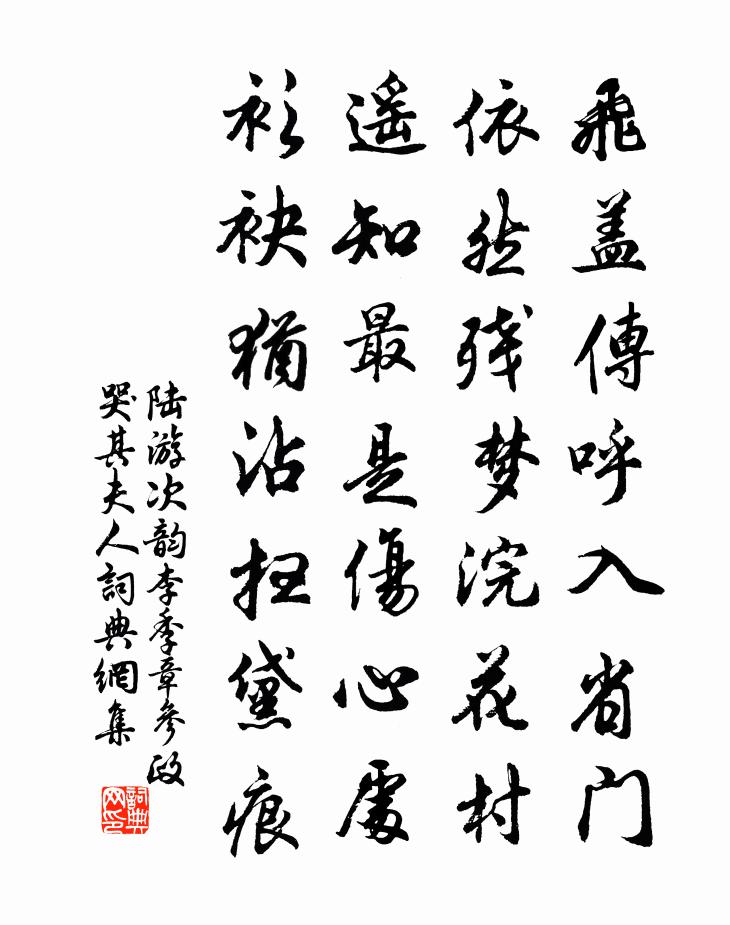 飛盖傳呼入省门
依然残梦浣花村
遥知最是傷心處
衫袂猶沾抆黛痕
陆游次韵李季章参政
哭其夫人詞典網集
詞典网印